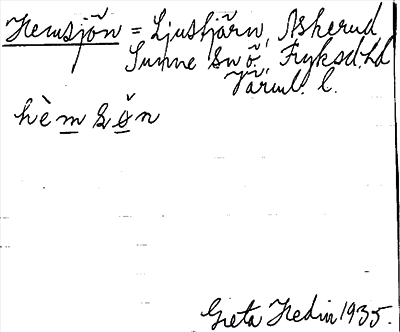 Hemsjön = Ljustjärn, Askerud
Sunne sn ö. Fryksd. hd
Värml. l.
hèm sö̌n
Greta Hedin 1935.